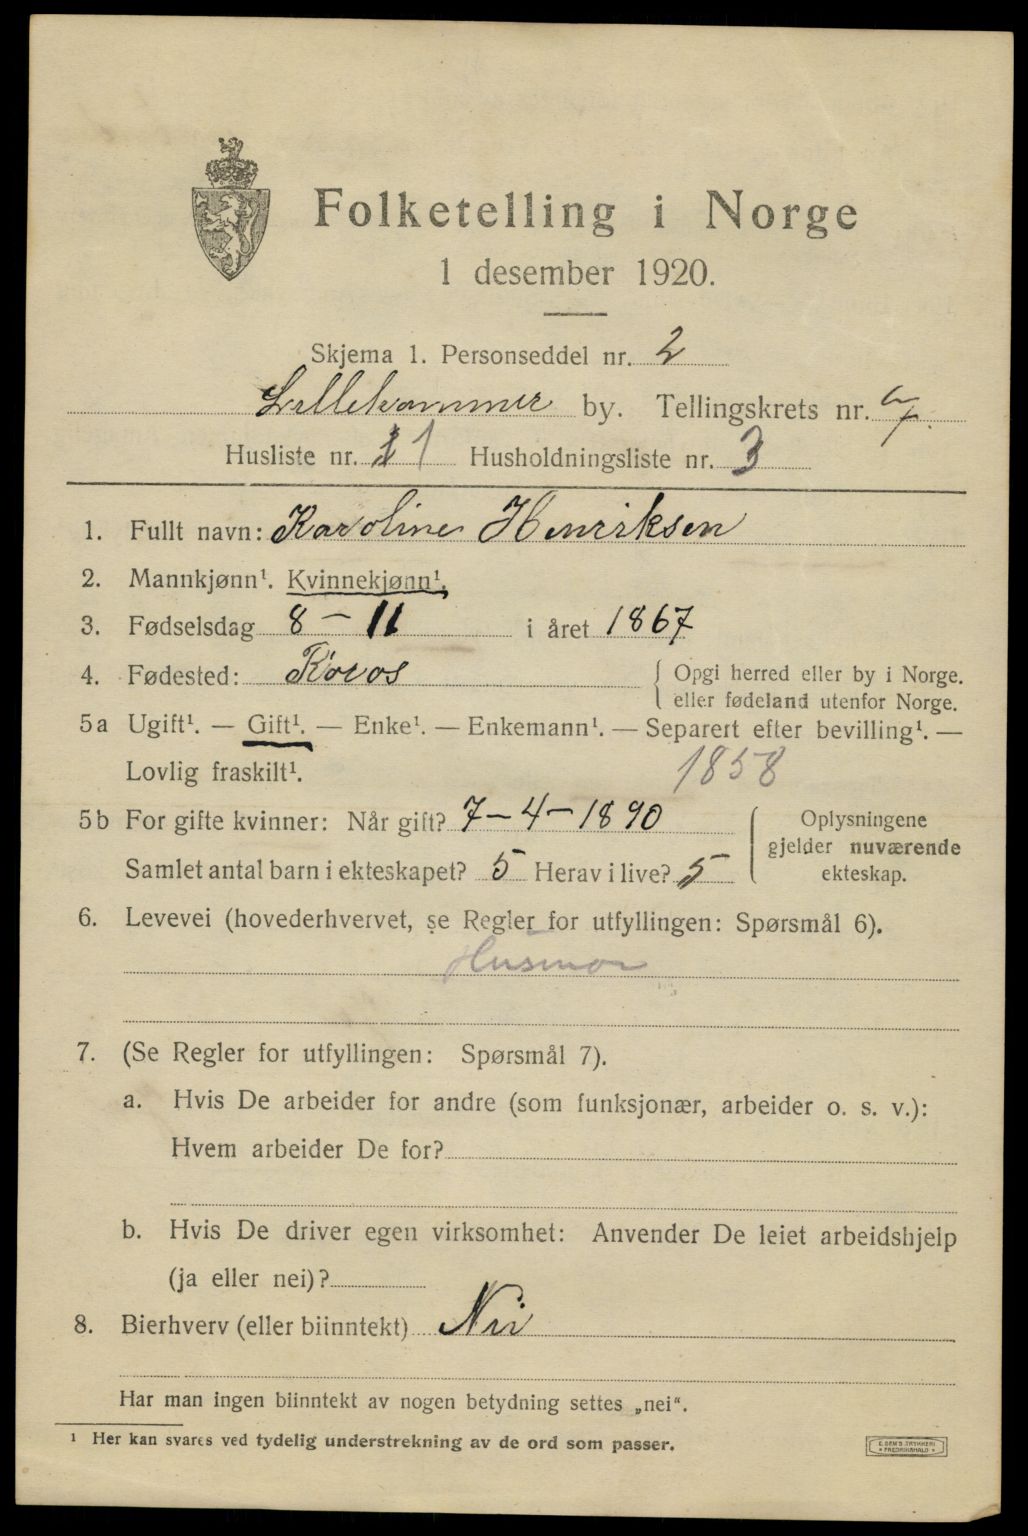 Folketelling i Norge
1 desember 1920.
Skjema 1. Personseddel nr. 2
Lillehammer by. Tellingskrets nr. 7.
Husliste nr. 11 Husholdningsliste nr. 3
1. Fullt navn: Karoline Henriksen
2. Mannkjønn¹. Kvinnekjønn¹.
3. Fødselsdag 8 – 11 i året 1867
4. Fødested: Røros { Opgi herred eller by i Norge.
eller fødeland utenfor Norge.
5a Ugift¹. — Gift¹. — Enke¹. — Enkemann¹. — Separert efter bevilling¹. —
Lovlig fraskilt¹. 1858
5b For gifte kvinner: Når gift? 7 – 4 – 1890 { Oplysningene
gjelder nuværende
Samlet antal barn i ekteskapet? 5 Herav i live? 5 ekteskap.
6. Levevei (hovederhvervet, se Regler for utfyllingen: Spørsmål 6).
Husmor
7. (Se Regler for utfyllingen: Spørsmål 7).
a. Hvis De arbeider for andre (som funksjonær, arbeider o. s. v.):
Hvem arbeider De for?
b. Hvis De driver egen virksomhet: Anvender De leiet arbeidshjelp
(ja eller nei)?
8. Bierhverv (eller biinntekt) Nei
Har man ingen biinntekt av nogen betydning settes „nei".
¹ Her kan svares ved tydelig understrekning av de ord som passer.
E. SEM'S TRYKKERI
* FREDRIKSHALD *